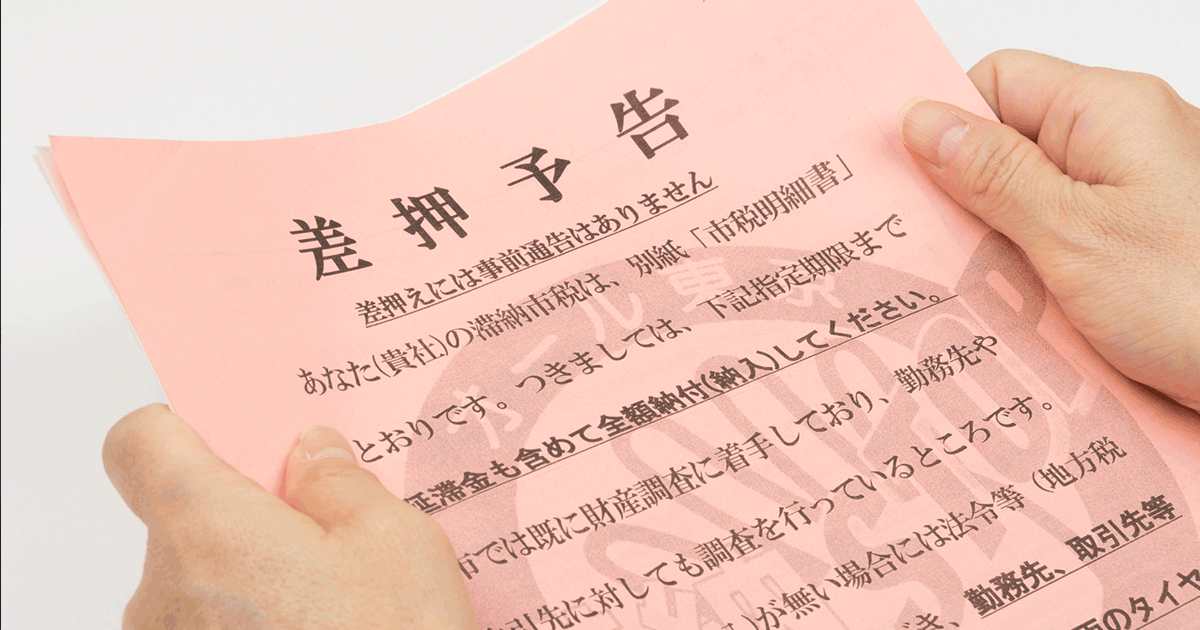 差押予告
差押えには事前通告はありません
あなた(貴社)の滞納市税は、別紙「市税明細書」
とおりです。つきましては、下記指定期限まで
延滞金も含めて全額納付(納入)してください。
市では既に財産調査に着手しており、勤務先や
引先に対しても調査を行っているところです。
が無い場合には法令等（地方税
き、勤務先、取引先等
のタイヤ
オール東京